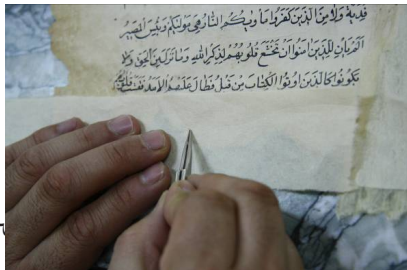 فدية ولا من الذين كفروا مأويكم النار هي موليكم وبئس المصير
ألم يأن للذين امنوا أن تخشع قلوبهم لذكر الله وما نزل من الحق ولا
يكونوا كالذين اوتوا الكتاب من قبل فطال عليهم الأمد فقست قلوبهم